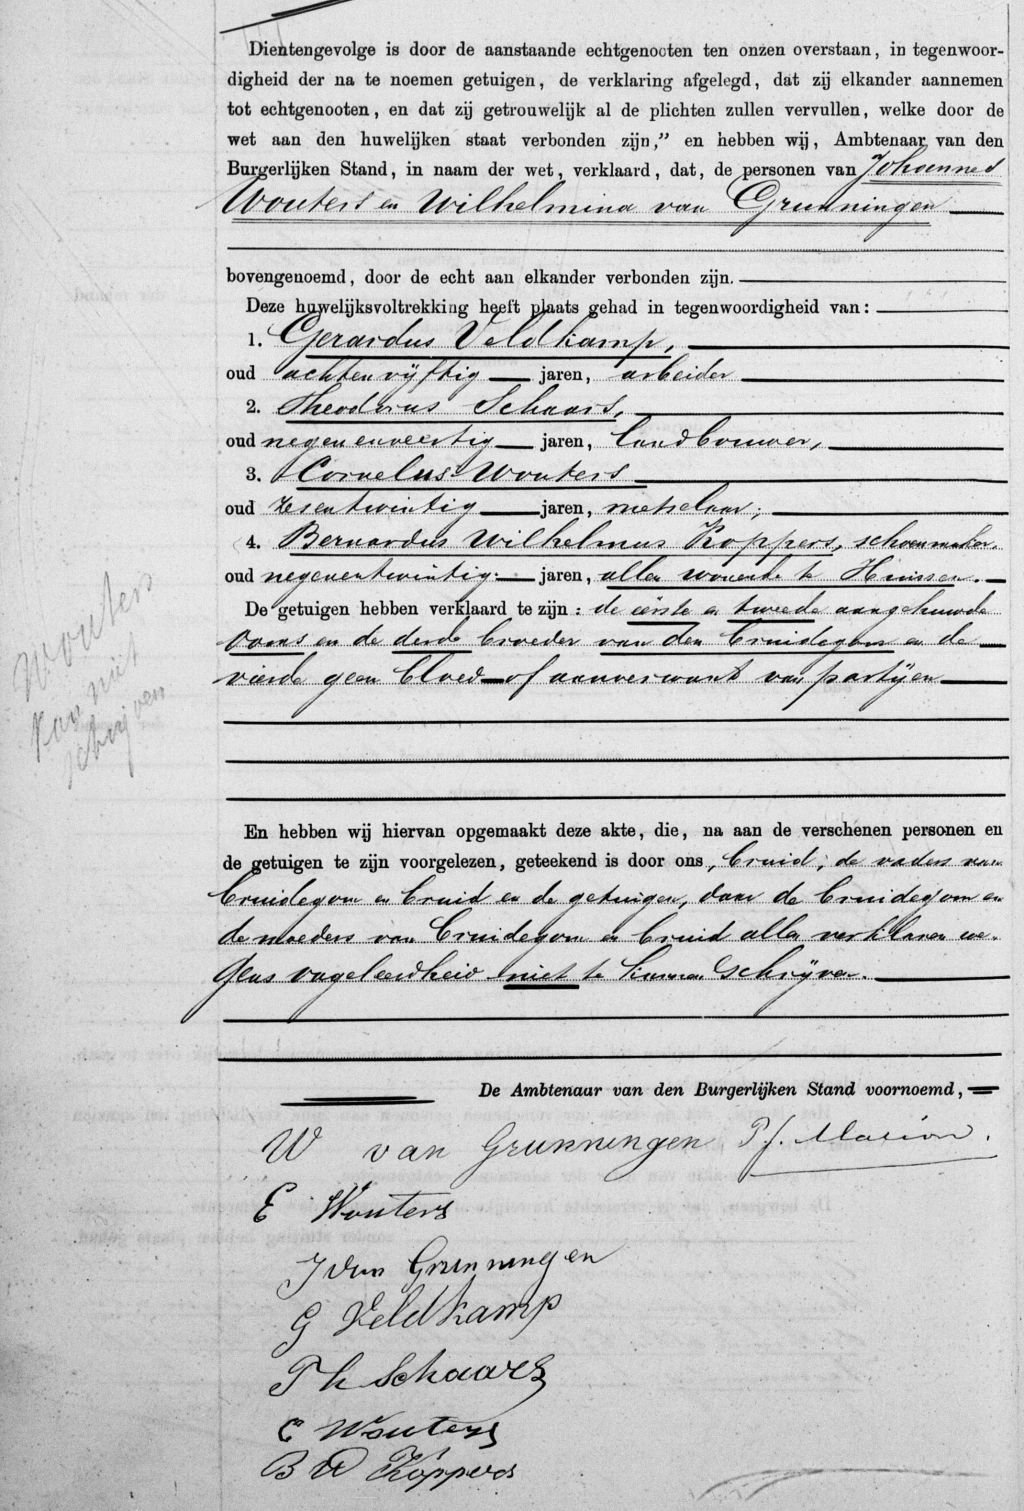 Dientengevolge is door de aanstaande echtgenooten ten onzen overstaan, in tegenwoor-
digheid der na te noemen getuigen, de verklaring afgelegd, dat zij elkander aannemen
tot echtgenooten, en dat zij getrouwelijk al de plichten zullen vervullen, welke door de
wet aan den huwelijken staat verbonden zijn,” en hebben wij, Ambtenaar van den
Burgerlijken Stand, in naam der wet, verklaard, dat, de personen van Johannes
Wouters en Wilhelmina van Grunningen
bovengenoemd, door de echt aan elkander verbonden zijn.
Deze huwelijksvoltrekking heeft plaats gehad in tegenwoordigheid van:
1. Gerardus Veldkamp,
oud achtenvijftig jaren, arbeider
2. Theodorus Schaars,
oud negenenveertig jaren, landbouwer,
3. Cornelus Wouters
oud zesentwintig jaren, metselaar,
4. Bernardus Wilhelmus Koppers, schoenmaker,
oud negenentwintig jaren, allen wonende te Huissen.
De getuigen hebben verklaard te zijn: de eerste en tweede aangehuwde
ooms en de derde broeder van den bruidegom en de
vierde geen bloed- of aanverwant van partijen
Wouters
kan niet
schrijven
En hebben wij hiervan opgemaakt deze akte, die, na aan de verschenen personen en
de getuigen te zijn voorgelezen, geteekend is door ons, bruid, de vaders van
bruidegom en bruid en de getuigen, daar de bruidegom en
de moeders van bruidegom en bruid allen verklaren we-
gens ongeleerdheid niet te kunnen schrijven.
De Ambtenaar van den Burgerlijken Stand voornoemd,
W van Grunningen P J. Marion.
E Wouters
J van Grunningen
G Veldkamp
Th Schaars
C Wouters
B W Koppers